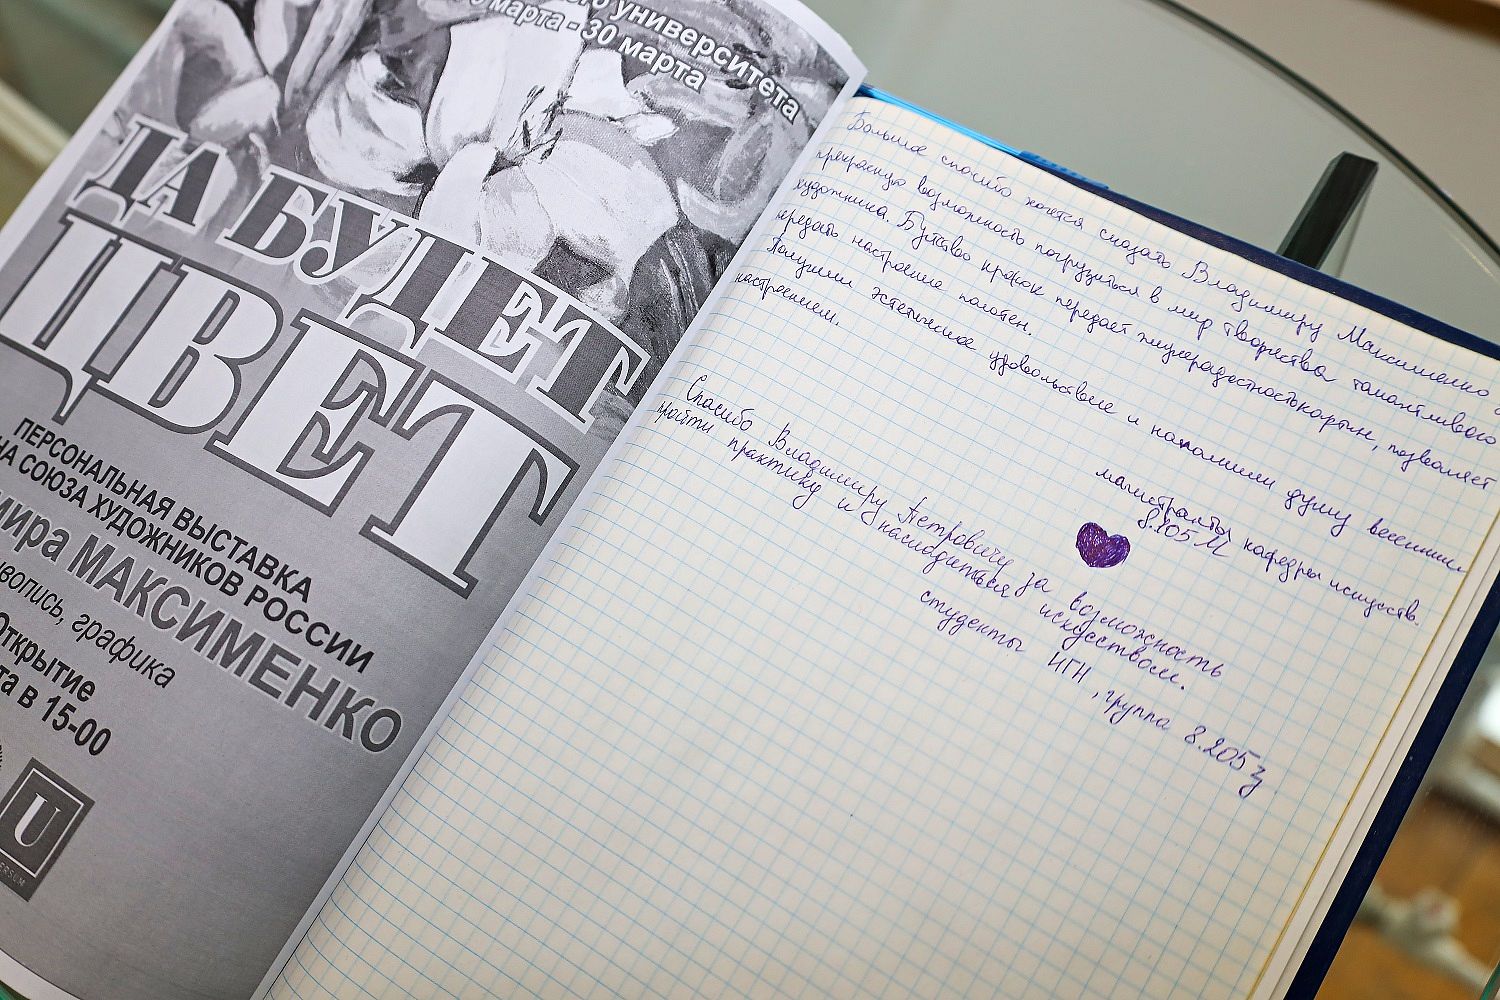 университета
марта - 30 марта
ДА БУДЕТ
ЦВЕТ
ПЕРСОНАЛЬНАЯ ВЫСТАВКА
НА СОЮЗА ХУДОЖНИКОВ РОССИИ
мира МАКСИМЕНКО
вопись, графика
Открытие
та в 15-00
U
ERSUM
Большое спасибо хочется сказать Владимиру Максименко
прекрасную возможность погрузиться в мир творчества талантливого
художника. Буйство красок передает жизнерадостность картин, позволяет
передать настроение полотен.
Получили эстетическое удовольствие и наполнили душу весенним
настроением.
магистранты кафедры искусств.
8.105М
Спасибо Владимиру Петровичу за возможность
пройти практику и насладиться искусством.
студенты ИГН, группа 8.205з